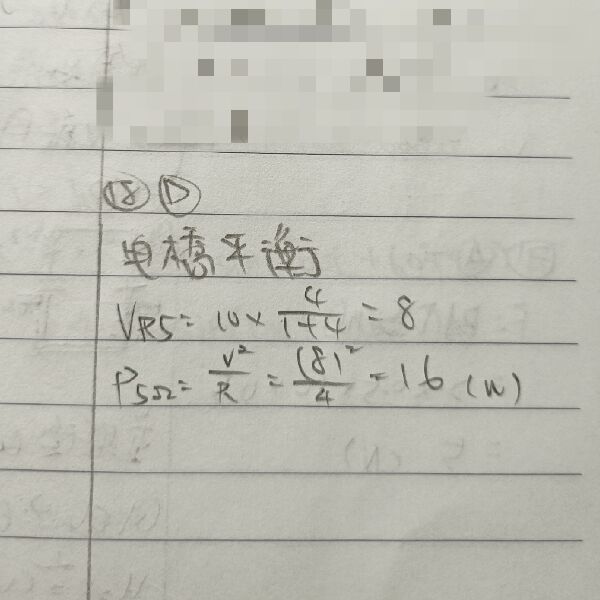 ⑱ Ⓓ
电橋平衡
VR5 = 10 × 4/(1+4) = 8
P5Ω = V²/R = (8)²/4 = 16 (W)